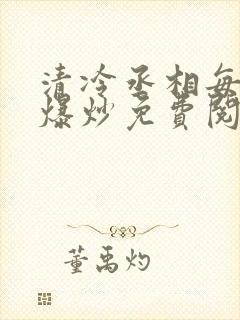 清冷丞相每
爆炒免费阅
董禹灼